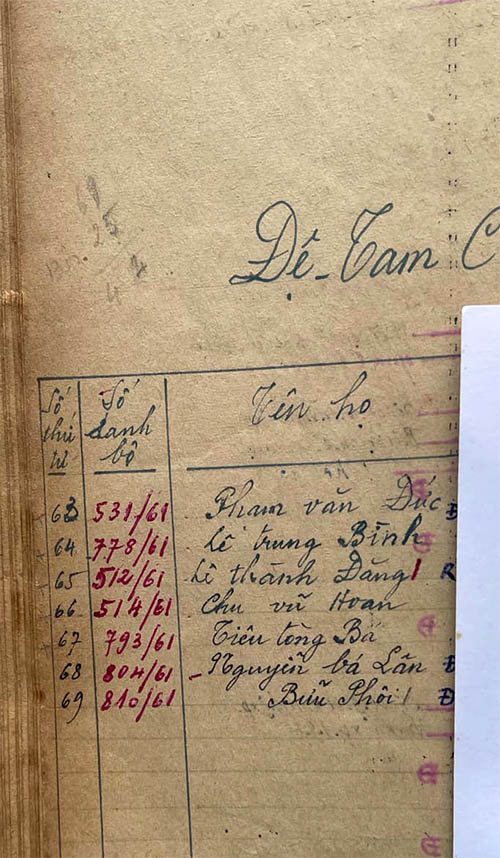 Đệ-Tam C
Số thứ tự Số danh bộ Tên họ
63 531/61 Phạm văn Đức
64 778/61 Lê trung Bình
65 512/61 Lê thành Đăng
66 514/61 Chu vũ Hoan
67 793/61 Tiêu tòng Bá
68 804/61 Nguyễn bá Lân
69 810/61 Bửu Phôi